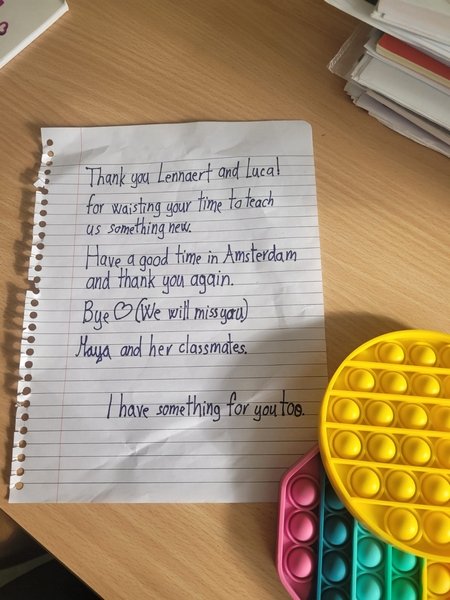 Thank you Lennaert and Luca!
for waisting your time to teach
us something new.
Have a good time in Amsterdam
and thank you again.
Bye ♡ (We will miss you)
Maya and her classmates.
I have something for you too.